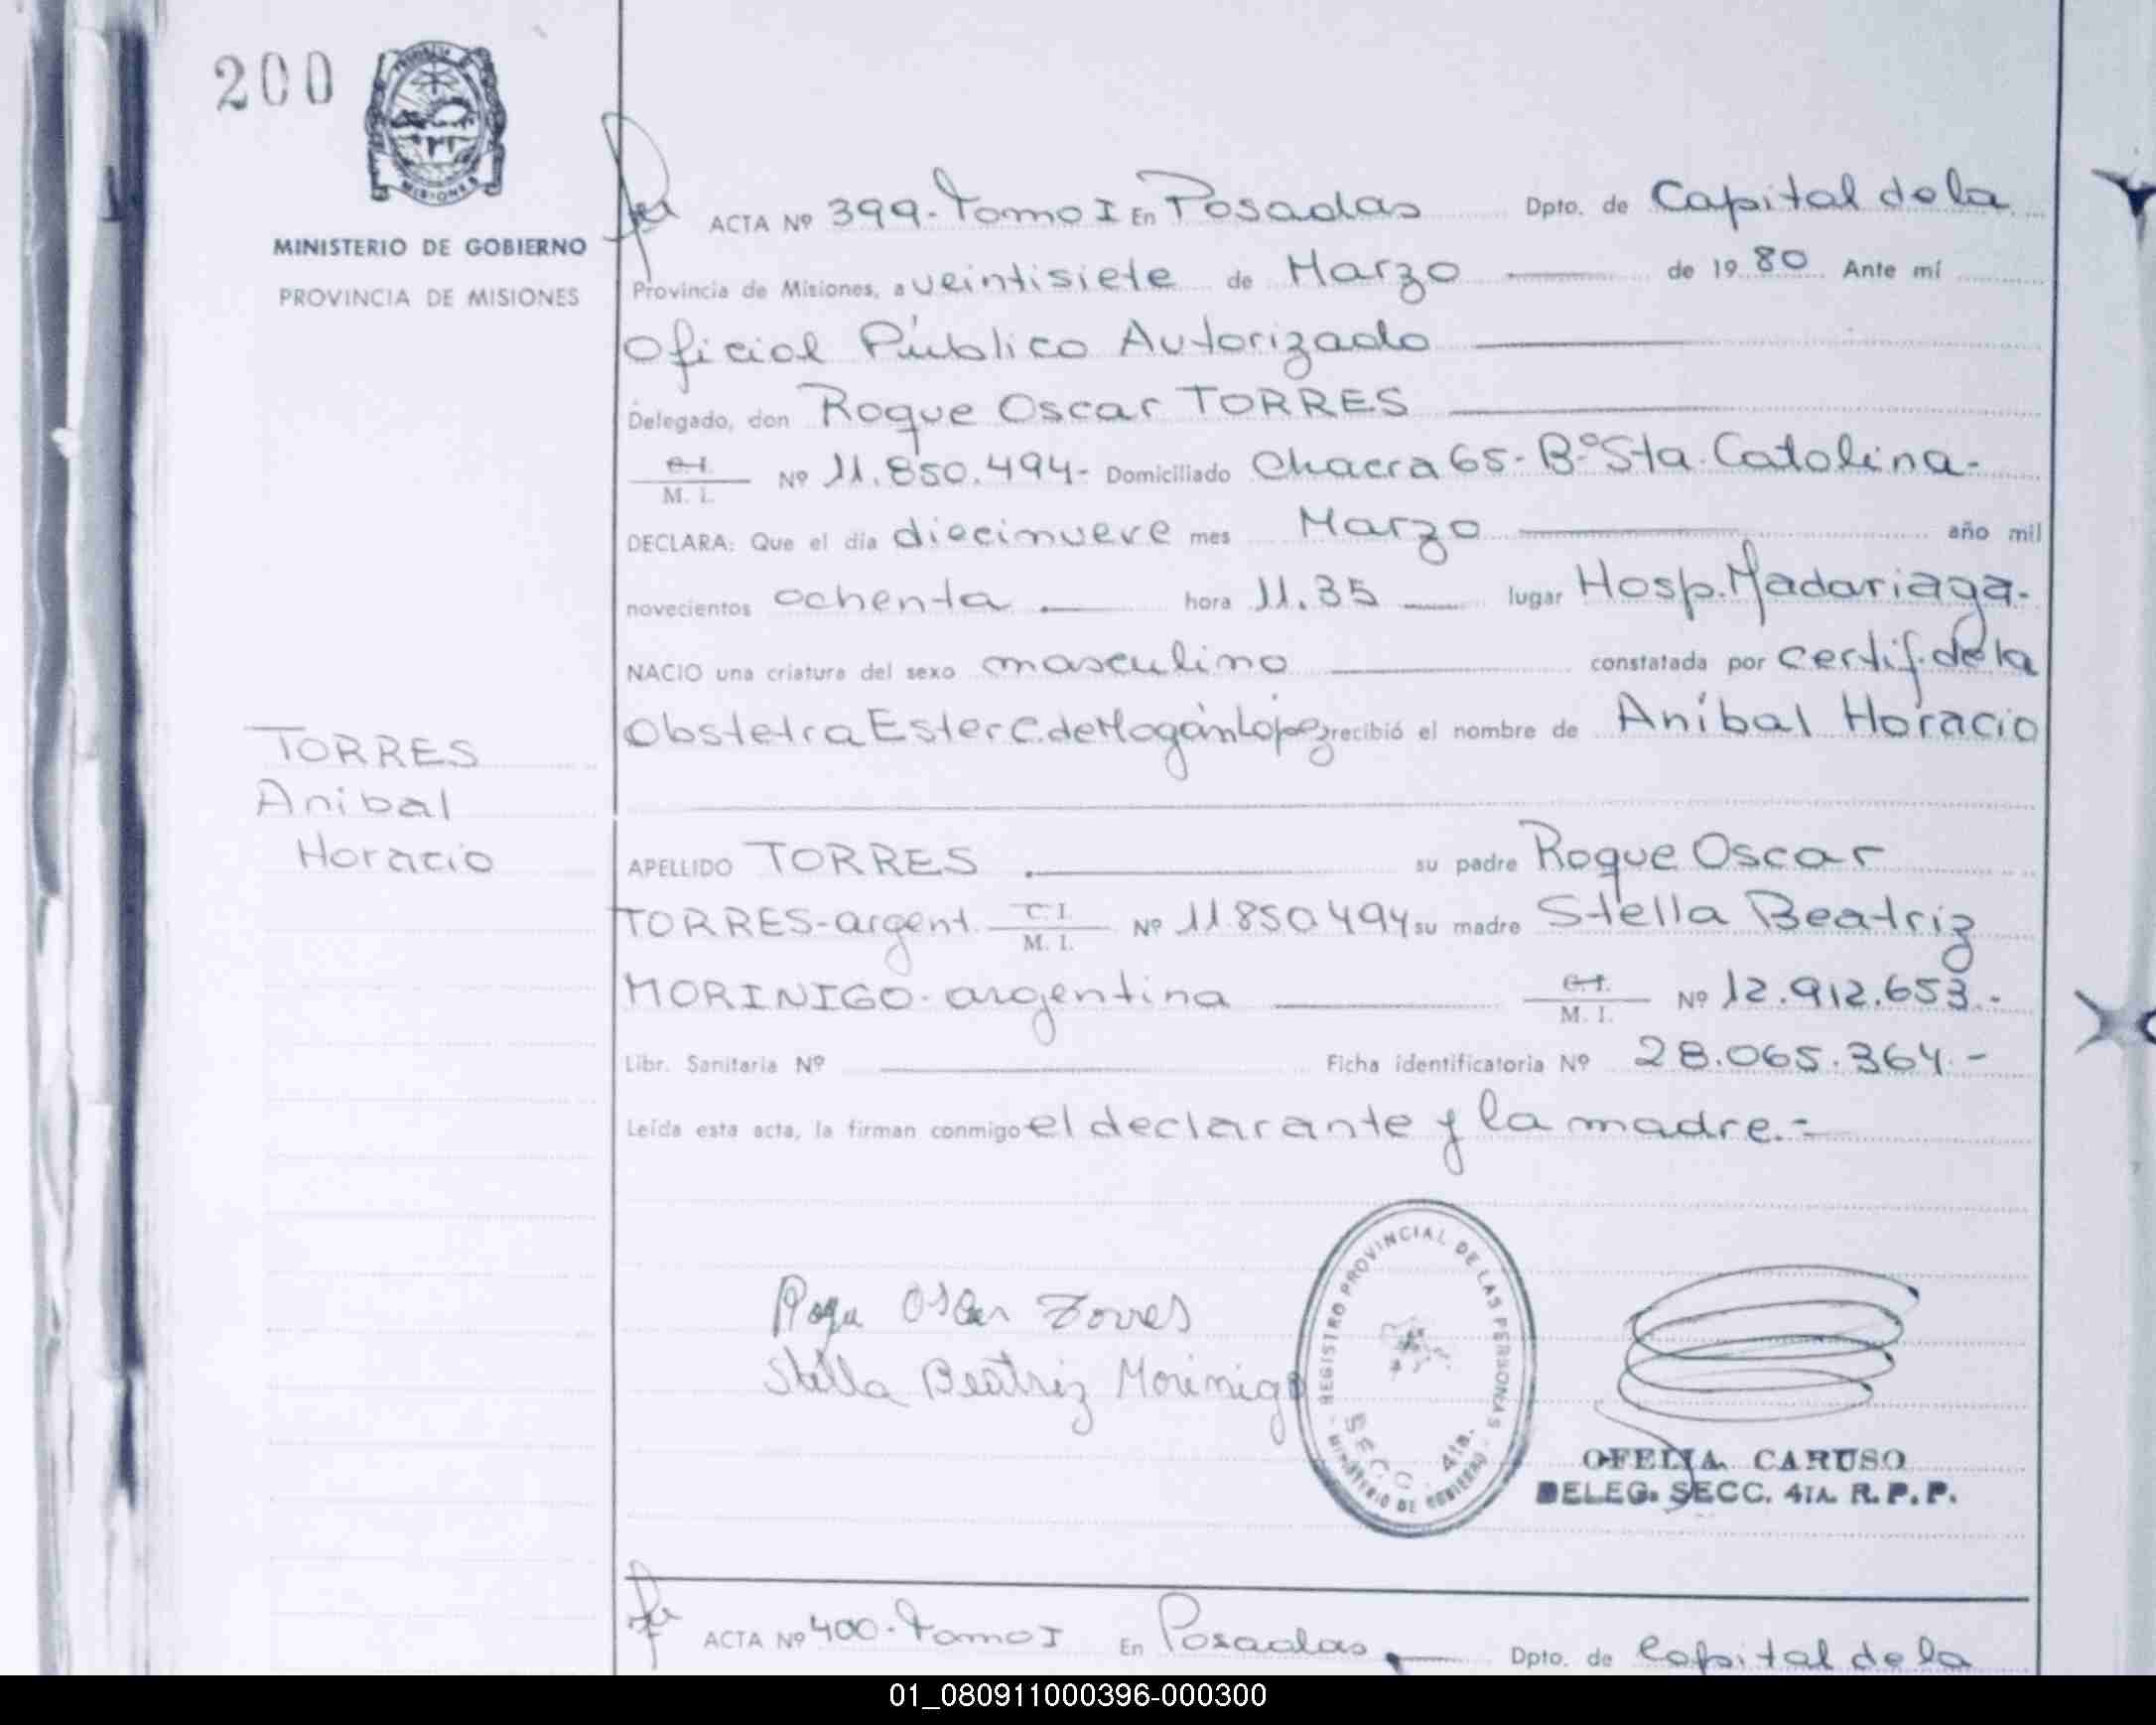 200
PROVINCIA DE
MISIONES
MINISTERIO DE GOBIERNO
PROVINCIA DE MISIONES
TORRES
Anibal
Horacio
ACTA Nº 399- Tomo I En Posadas Dpto. de Capital de la
Provincia de Misiones, a veintisiete de Marzo de 1980 Ante mí
Oficial Público Autorizado
Delegado, don Roque Oscar TORRES
C.I.
M. I. Nº 11.850.494- Domiciliado Chacra 65- Bº Sta. Catalina-
DECLARA: Que el día diecinueve mes Marzo año mil
novecientos ochenta hora 11.35 lugar Hosp. Madariaga-
NACIO una criatura del sexo masculino constatada por certif. de la
Obstetra Ester C. de Mogán López recibió el nombre de Aníbal Horacio
APELLIDO TORRES su padre Roque Oscar
TORRES-argent. C.I.
M. I. Nº 11.850.494 su madre Stella Beatriz
MORINIGO- argentina C.I.
M. I. Nº 12.912.653.-
Libr. Sanitaria Nº Ficha identificatoria Nº 28.065.364.-
Leída esta acta, la firman conmigo el declarante y la madre.-
Roque Oscar Torres
Stella Beatriz Morinigo
REGISTRO PROVINCIAL DE LAS PERSONAS
SECC. 4ta.
MINISTERIO DE GOBIERNO
OFELIA CARUSO
DELEG. SECC. 4TA. R.P.P.
ACTA Nº 400- Tomo I En Posadas Dpto. de Capital de la
01_080911000396-000300